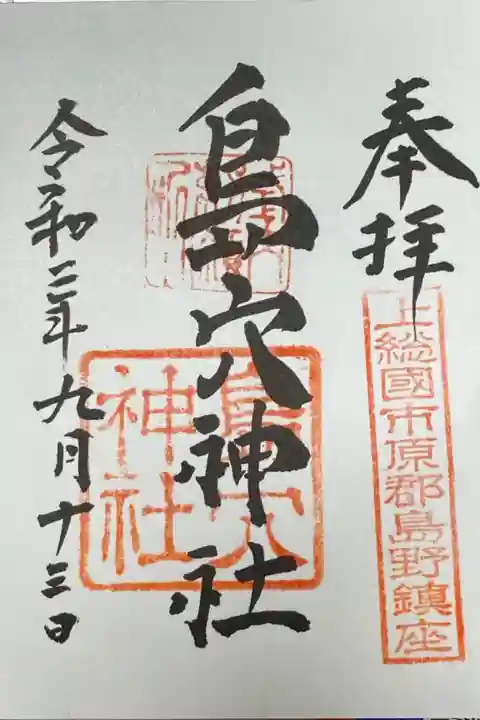 奉拝
上総國市原郡島野鎮座
島穴神社
島穴
神社
令和二年九月十三日